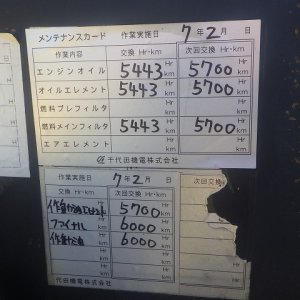 メンテナンスカード 作業実施日 7年2月 日
作業内容 交換 Hr・km 次回交換 Hr・km
エンジンオイル 5443 Hr km 5700 Hr km
オイルエレメント 5443 Hr km 5700 Hr km
燃料プレフィルタ Hr km Hr km
燃料メインフィルタ 5443 Hr km 5700 Hr km
エアエレメント Hr km Hr km
千代田機電株式会社
作業実施日 7年2月 日
交換 Hr・km 次回交換 Hr・km 次回交換
5700 Hr km
ファイナル Hr km 6000 Hr km
作動油 Hr km 6000 Hr km
Hr km Hr km
代田機電株式会社